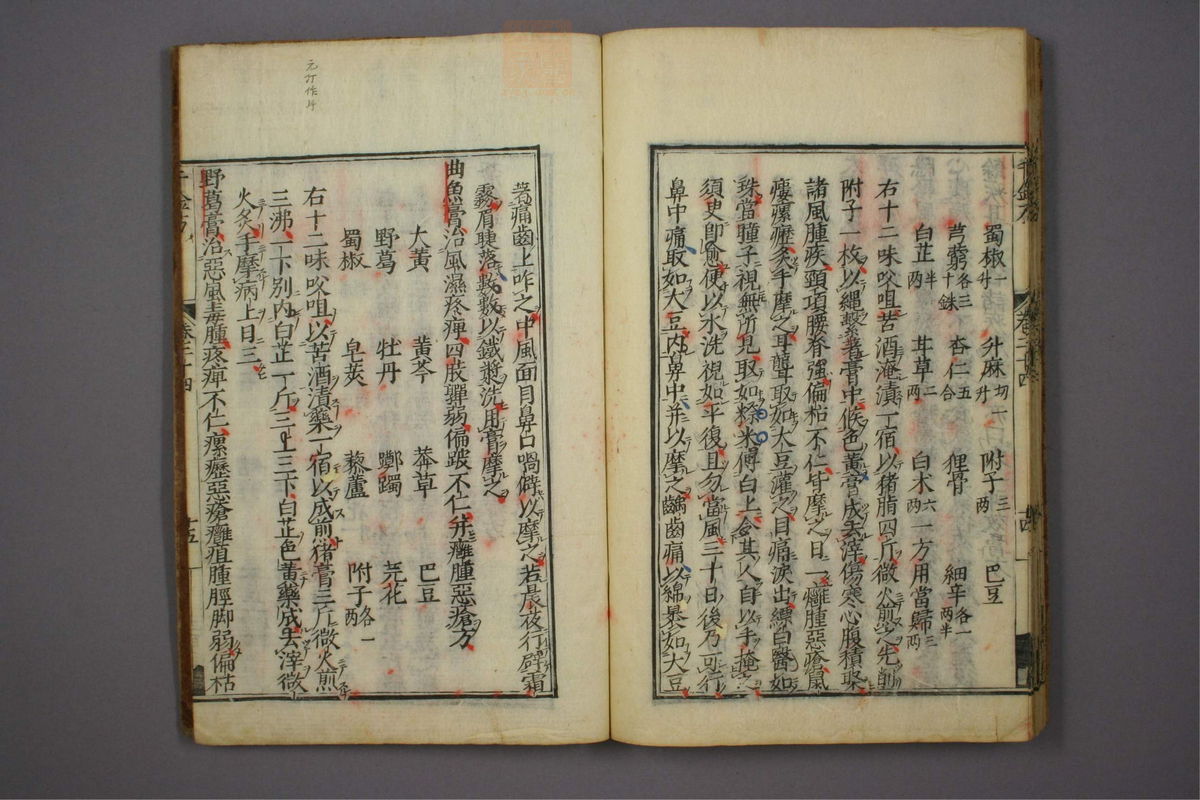 蜀椒一升 升麻切一升 附子三兩 巴豆
芎藭各三十銖 杏仁五合 狸骨 細辛各一兩半
白芷半兩 甘草二兩 白朮六兩 一方用當歸三兩
右十二味㕮咀苦酒淹漬一宿以猪脂四斤微火煎之先削
附子一枚以繩繫著膏中候色黃膏成去滓傷寒心腹積聚
諸風腫疾頸項腰脊強偏枯不仁皆摩之日一癰腫惡瘡鼠
瘻瘰癧炙手摩之耳聾取如大豆灌之目痛淚出縹白瞖如
珠當瞳子視無所見取如穄米傅白上令其人自以手掩之
須臾即愈便以水洗視如平復且勿當風三十日後乃可行
鼻中痛取如大豆內鼻中并以摩之齲齒痛以綿裹如大豆
著痛齒上咋之中風面目鼻口喎僻以摩之若晨夜行辟霜
霧眉睫落數數以鐵漿洗用膏摩之
曲魚膏治風濕疼痹四肢軃弱偏跛不仁并癰腫惡瘡方
大黃 黃芩 莽草 巴豆
野葛 牡丹 躑躅 芫花
蜀椒 皂莢 藜蘆 附子各一兩
右十二味㕮咀以苦酒漬藥一宿以成煎猪膏三斤微火煎
三沸一下別內白芷一片三上三下白芷色黃藥成去滓微
火炙手摩病上日三
野葛膏治惡風毒腫疼痹不仁瘰癧惡瘡癰疽腫脛脚弱偏枯
卷二十四
十五
元丁作片